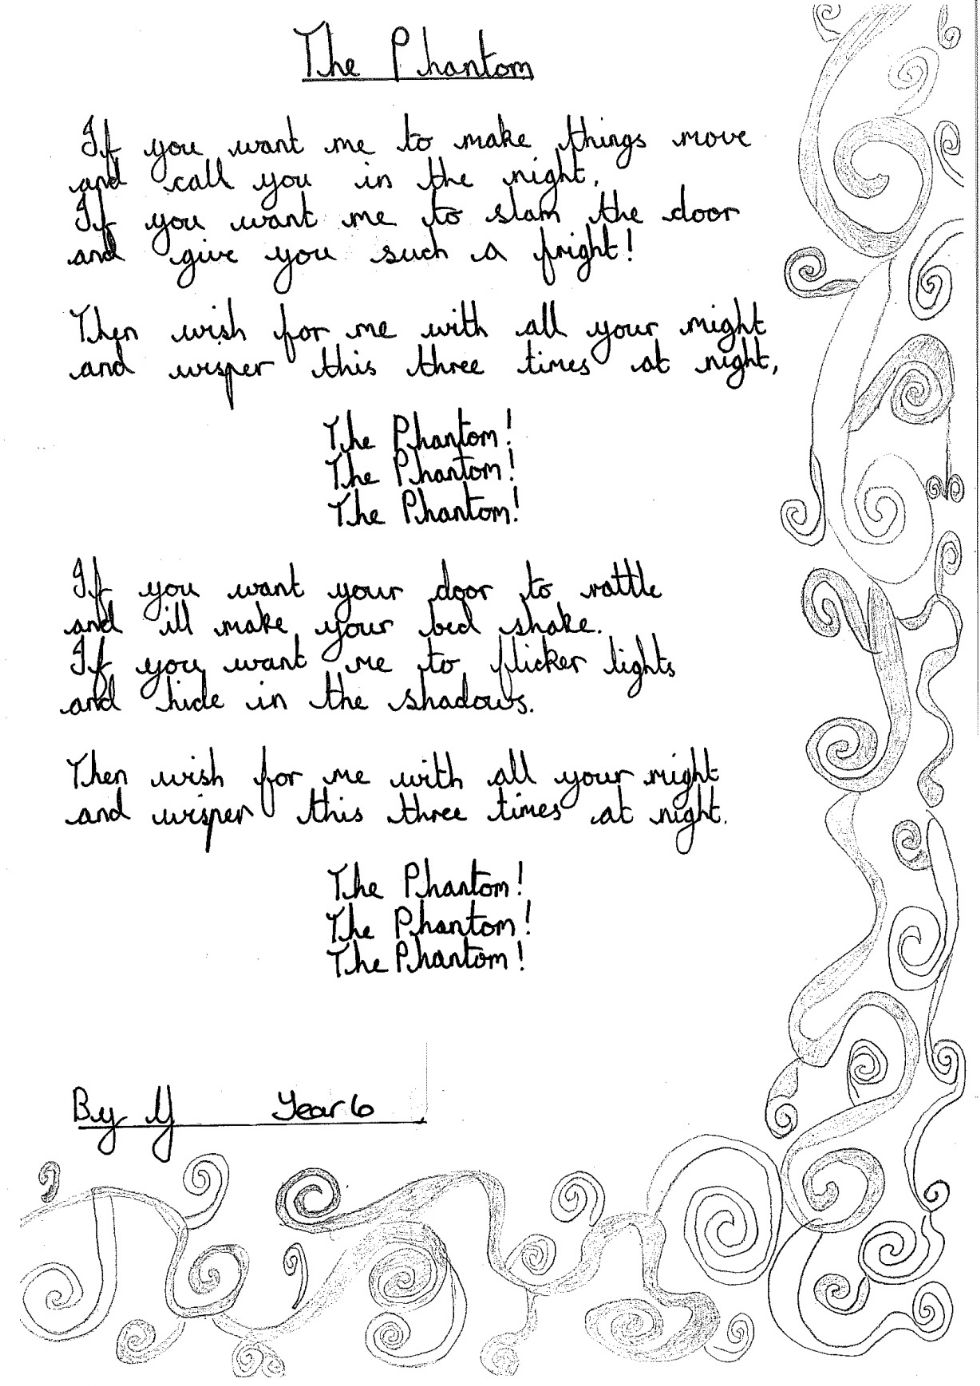 The Phantom
If you want me to make things move
and call you in the night,
If you want me to slam the door
and give you such a fright!
Then wish for me with all your might
and wisper this three times at night,
The Phantom!
The Phantom!
The Phantom!
If you want your door to rattle
and ill make your bed shake.
If you want me to flicker lights
and hide in the shadows.
Then wish for me with all your might
and wisper this three times at night.
The Phantom!
The Phantom!
The Phantom!
By Y Year 6